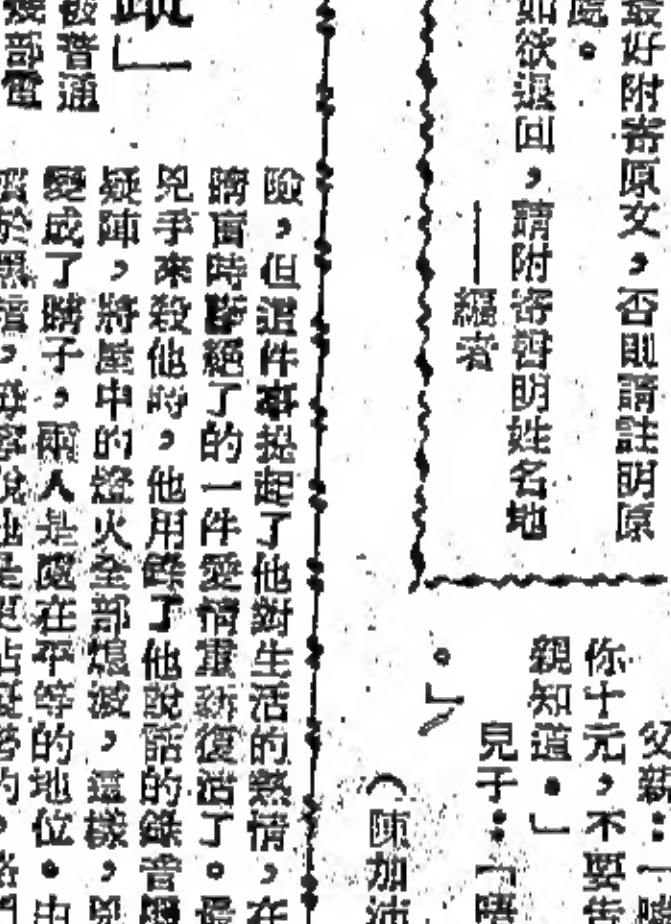 最好附寄原文，否則請註明原
處。
如欲退回，請附寄書明姓名地
——編者
父親：「
你十元，不要告
親知道。」
兒子：「唔
。」
（陳加
蹤」
被普通
部電
險，但這件事提起了他對生活的熱情，在
時斷絕了的一件愛情重新復活了。最
兇手來殺他時，他用錄了他說話的錄音機
疑陣，將屋中的燈火全部熄滅，這樣，兇
變成了瞎子，兩人是處在平等的地位。由
於黑暗，